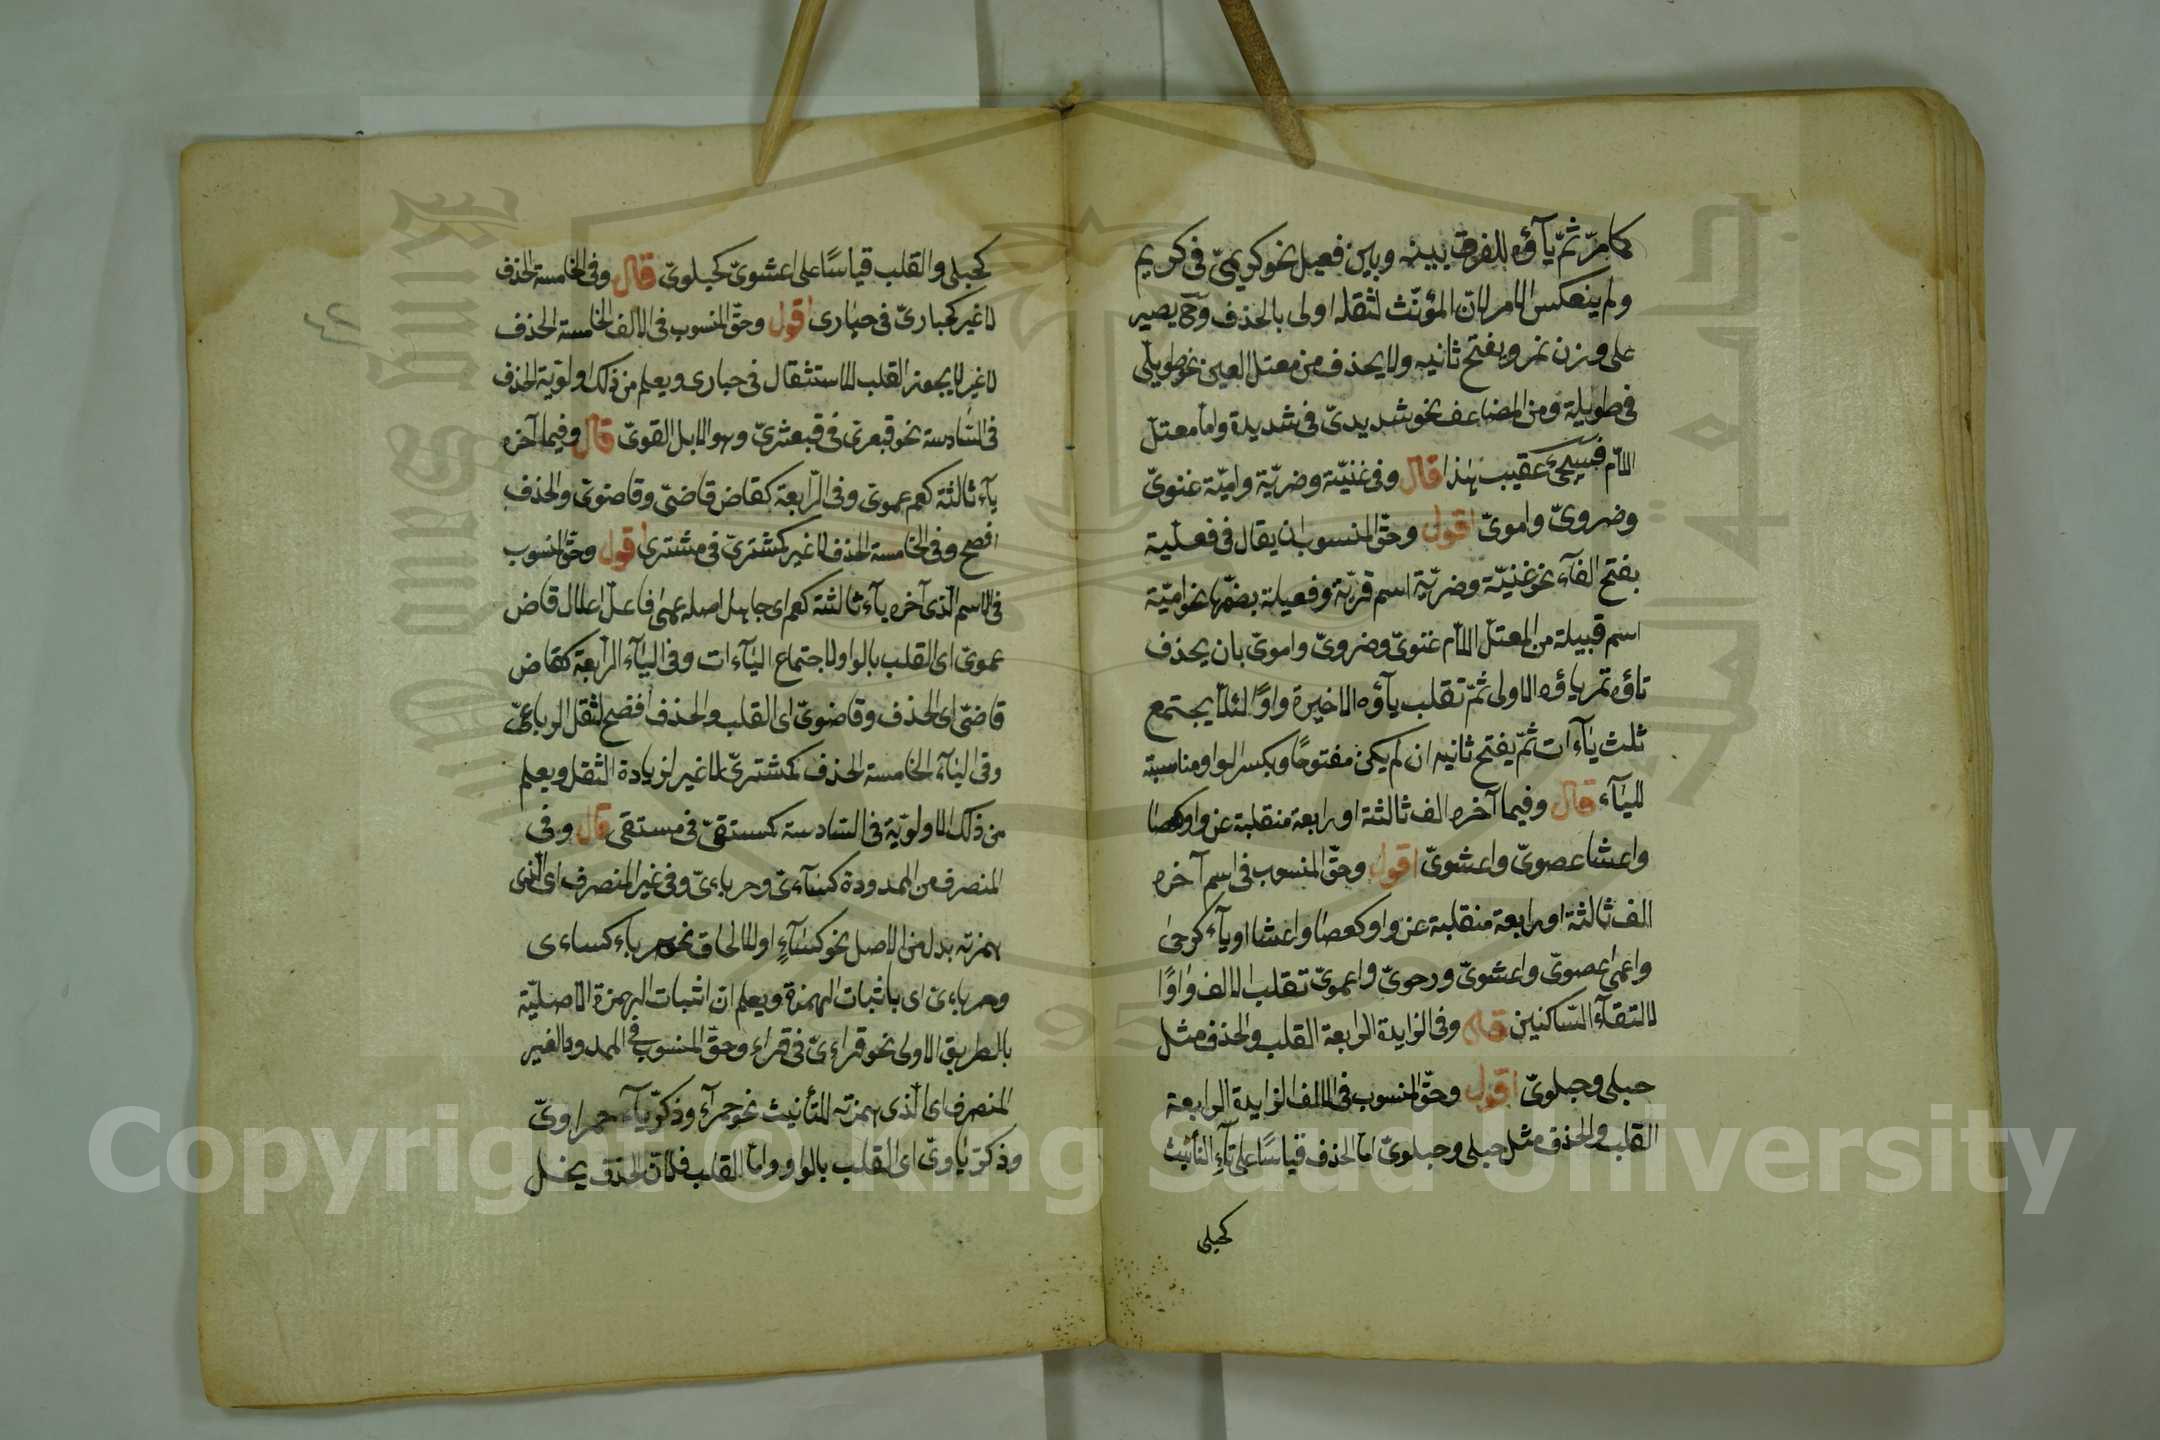 كما مرّ ثمّ يآؤه للفرق بينه وبين فعيل نحو كريميّ فى كريم
ولم ينعكس الامر لان المؤنّث لثقله اولى بالحذف وح يصير
على وزن نمر ويفتح ثانيه ولا يحذف من معتل العين نحو طويلىّ
فى طويلة ومن المضاعف نحو شديدىّ فى شديدة واما معتلّ
اللام فسيجئ عقيب هذا قال وفى غنيّة وضريّة واميّة غنوىّ
وضروىّ واموىّ اقول وحقّ المنسوب ان يقال فى فعليّة
بفتح الفآء نحو غنيّة وضريّة اسم قرية وفعيلة بضمّها نحو اميّة
اسم قبيلة من المعتلّ اللام غنوىّ وضروىّ واموىّ بان يحذف
تاؤه ثم ياؤه الاولى ثمّ تقلب يآؤه الاخيرة واوًا لئلا يجتمع
ثلث يآءات ثمّ يفتح ثانيه ان لم يكن مفتوحًا ويكسر الواو مناسبة
لليآء قال وفيما آخره الف ثالثة او رابعة منقلبة عن واو كعصا
واعشا عصوىّ واعشوىّ اقول وحقّ المنسوب فى اسم آخره
الف ثالثة او رابعة منقلبة عن واو كعصا واعشا او يآء كرحى
واعمى عصوىّ واعشوىّ ورحوىّ واعموىّ تقلب الالف واوًا
لالتقآء الساكنين قال وفى الزايدة الرابعة القلب والحذف مثل
حبلى وحبلوىّ اقول وحقّ المنسوب فى الالف الزايدة الرابعة
القلب والحذف مثل حبلى وحبلوىّ اما الحذف قياسًا على تآء التأنيث
كحبلى
كحبلى والقلب قياسًا على اعشوىّ كحبلوىّ قال وفى الخامسة الحذف
لا غير كحبارىّ فى حبارى اقول وحقّ المنسوب فى الالف الخامسة الحذف
لا غير لا يجوز القلب للاستثقال فى حبارى ويعلم من ذلك اولويّة الحذف
فى السّادسة نحو قبعثرىّ فى قبعثرىّ وهو الابل القوىّ قال وفيما آخره
يآء ثالثة كعم عموىّ وفى الرّابعة كقاض قاضىّ وقاضوىّ والحذف
افصح وفى الخامسة الحذف لا غير كمشترىّ فى مشترى اقول وحقّ المنسوب
فى الاسم الّذى آخره يآء ثالثة كعم اى جاهل اصله عمى فاعلّ اعلال قاض
عموىّ اى القلب بالواو لاجتماع اليآءات وفى اليآء الرّابعة كقاض
قاضىّ اى الحذف وقاضوىّ اى القلب والحذف افصح لثقل الرباعىّ
وفى اليآء الخامسة الحذف كمشترىّ لا غير لزيادة الثقل ويعلم
من ذلك الاولويّة فى السّادسة كمستقىّ فى مستقى قال وفى
المنصرف من الممدودة كسآءىّ وحرباءىّ وفى غير المنصرف اى الّذى
همزته بدل من الاصل نحو كسآءٍ او للالحاق نحو حرباء كساءى
وحرباءىّ اى باثبات الهمزة ويعلم ان اثبات الهمزة الاصليّة
بالطريق الاولى نحو قراءىّ فى قراء وحقّ المنسوب فى الممدود الغير
المنصرف اى الّذى همزته للتأنيث نحو حمرآء وذكريآء حمراوىّ
وذكريّاوىّ اى القلب بالواو واما القلب فلان الحذف يخل